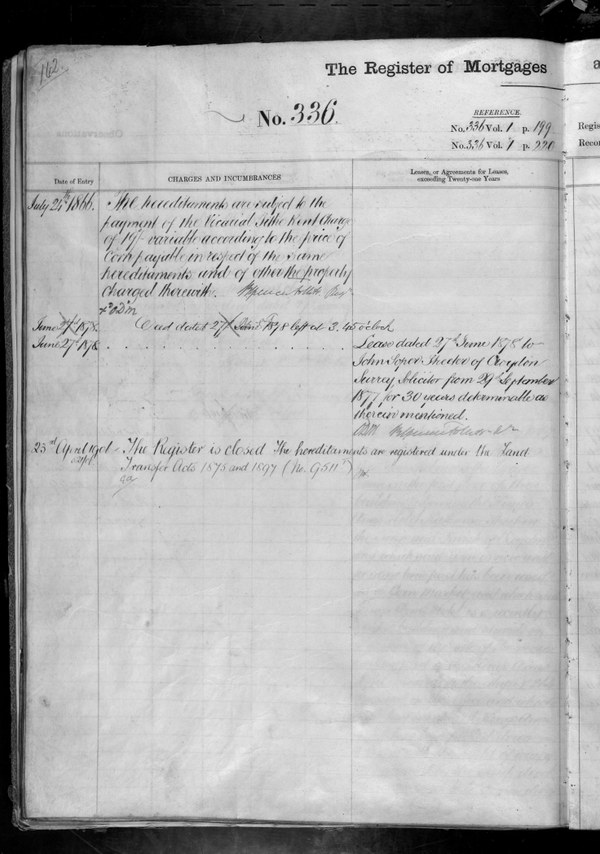 162
The Register of Mortgages
No. 336.
REFERENCE.
No. 336 Vol. 1 p. 199
No. 336 Vol. 1 p. 220
Regis
Recor
Date of Entry
CHARGES AND INCUMBRANCES
Leases, or Agreements for Leases, exceeding Twenty-one Years
July 24th 1866. The hereditaments are subject to the
payment of the Vicarial Tithe Rent Charge
of 19/- variable according to the price of
Corn payable in respect of the same
hereditaments and of other property
charged therewith.
June 27th 1878. Deed dated 27th June 1878 left at 3.45 o'clock
June 27th 1878
Lease dated 27th June 1878 to
John Soper Streeter of Croydon
Surrey Solicitor from 29th September
1877 for 30 years determinable as
therein mentioned.
23rd April 1901 The Register is closed The hereditaments are registered under the Land
Transfer Acts 1875 and 1897 (No. 9511)